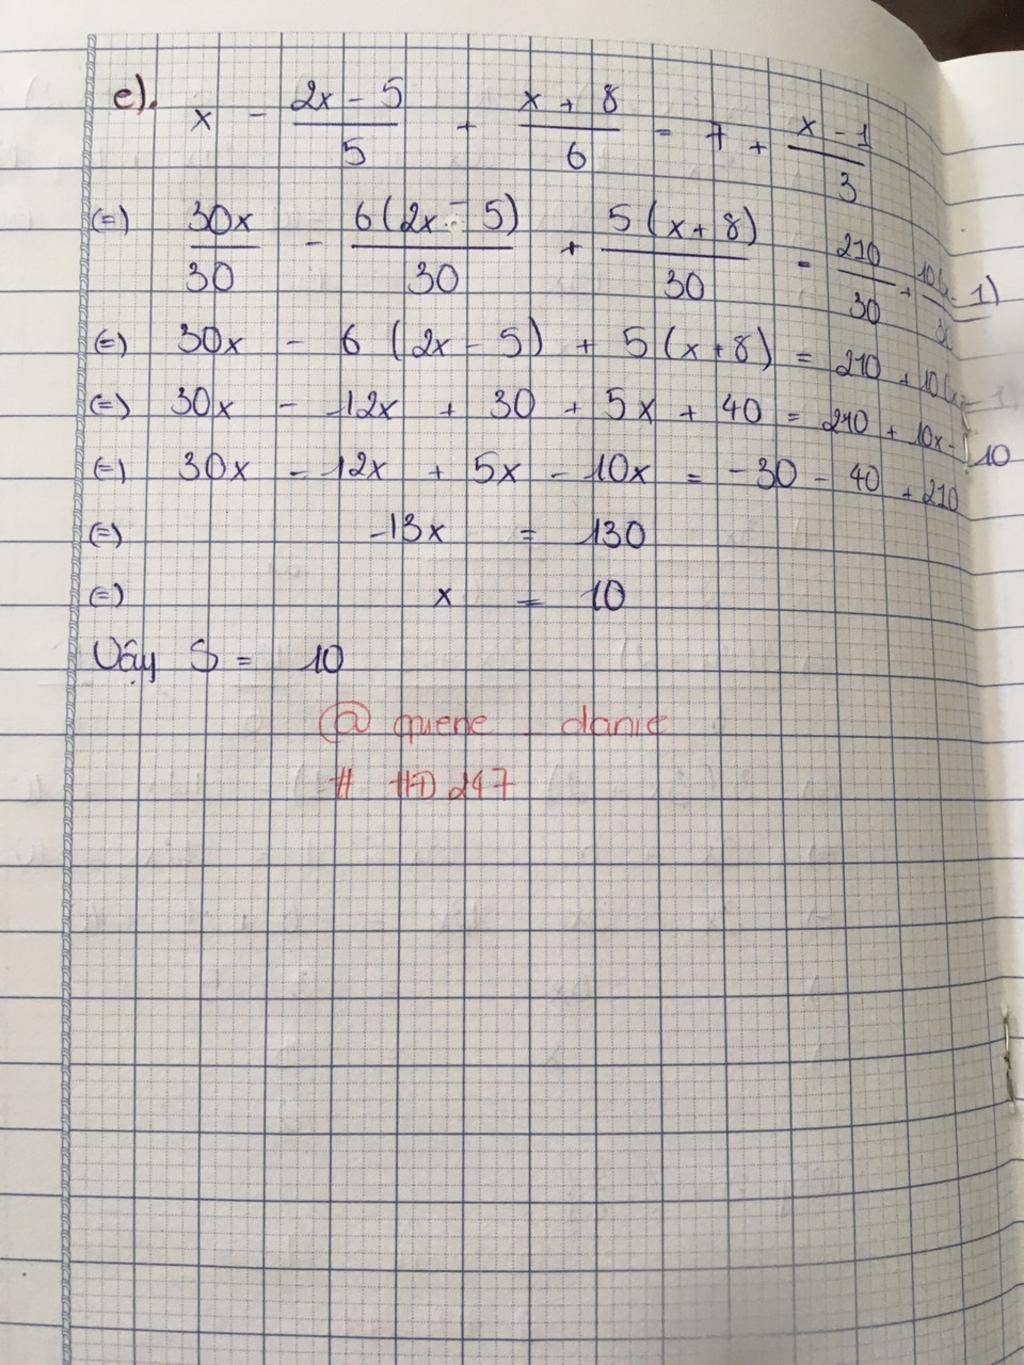 e). x - \frac{2x - 5}{5} + \frac{x + 8}{6} = 7 + \frac{x - 1}{3}
(=) \frac{30x}{30} - \frac{6(2x - 5)}{30} + \frac{5(x + 8)}{30} = \frac{210}{30} + \frac{10(x - 1)}{30}
(=) 30x - 6(2x - 5) + 5(x + 8) = 210 + 10(x - 1)
(=) 30x - 12x + 30 + 5x + 40 = 210 + 10x - 10
(=) 30x - 12x + 5x - 10x = -30 - 40 + 210
(=) -13x = 130
(=) x = 10
Vậy S = 10
@ quene _ danie
# HD 247